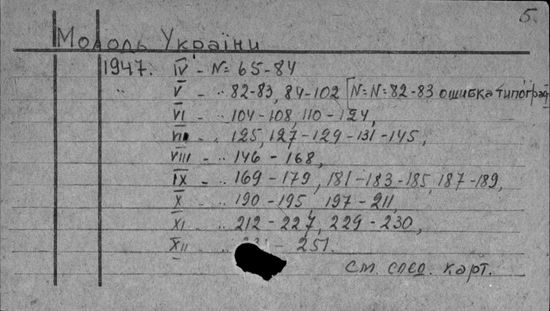 5.
Молодь України
1947. IV - N= 65-84
" V - " 82-83, 84-102 [N=N= 82-83 ошибка типограф
VI - " 104-108, 110-124,
VII - " 125, 127-129-131-145,
VIII - " 146-168,
IX - " 169-179, 181-183-185, 187-189,
X - " 190-195, 197-211,
XI - " 212-227, 229-230,
XII - " - 251.
См. спец. карт.